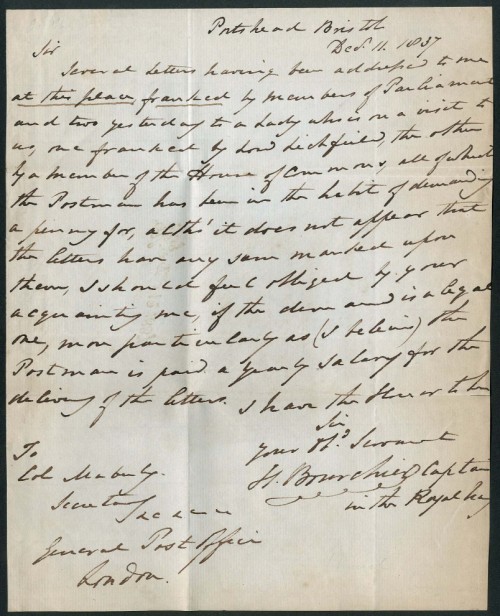 Portshead Bristol
Decr. 11. 1837
Sir
Several letters having been addressed to me
at this place, franked by members of Parliament
and two yesterday to a Lady who is on a visit to
us, one franked by Lord Lichfield, the other
by a member of the House of Commons, all of which
the Postman has been in the habit of demanding
a penny for, altho' it does not appear that
the letters have any sum marked upon
them, I should feel obliged by your
acquainting me, if the demand is a legal
one, more particularly as (I believe) the
Postman is paid a yearly salary for the
delivery of the letters. I have the Honor to be
Sir
your Obt. Servant
H. Bourchier Captain
in the Royal Navy
To
Col Maberly.
Secretary
General Post Office
London.